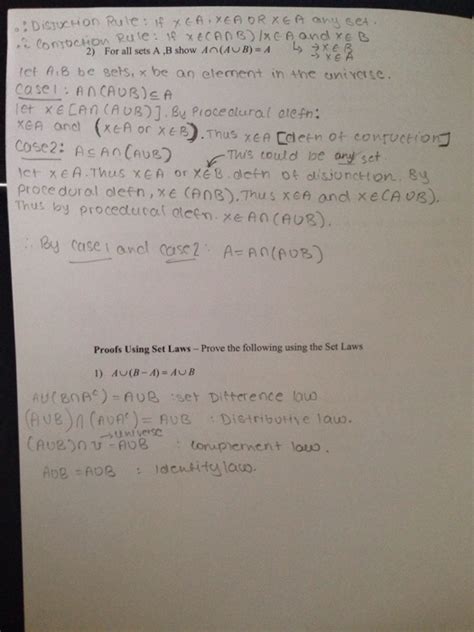 ∴ Disjuction Rule: if x∈A, x∈A OR x∈A any set.
∴ Conjuction Rule: if x∈(A∩B)/x∈A and x∈B
2) For all sets A ,B show A∩(A∪B) = A ↳ → x∈B
→ x∈A
let A,B be sets, x be an element in the universe.
Case 1: A∩(A∪B)⊆A
let x∈[A∩(A∪B)]. By Procedural defn:
x∈A and (x∈A or x∈B). Thus x∈A [defn of conjuction]
Case 2: A⊆A∩(A∪B) This could be any set
let x∈A. Thus x∈A or x∈B. defn of disjunction. By
procedural defn, x∈(A∩B). Thus x∈A and x∈(A∪B).
Thus by procedural defn. x∈A∩(A∪B).
∴ By case 1 and case 2: A=A∩(A∪B)
Proofs Using Set Laws – Prove the following using the Set Laws
1) A∪(B – A) = A∪B
A∪(B∩Aᶜ) = A∪B : set Difference law
(A∪B)∩(A∪Aᶜ) = A∪B : Distributive law.
→ universe
(A∪B)∩U = A∪B : Complement law.
A∪B = A∪B : Identity law.